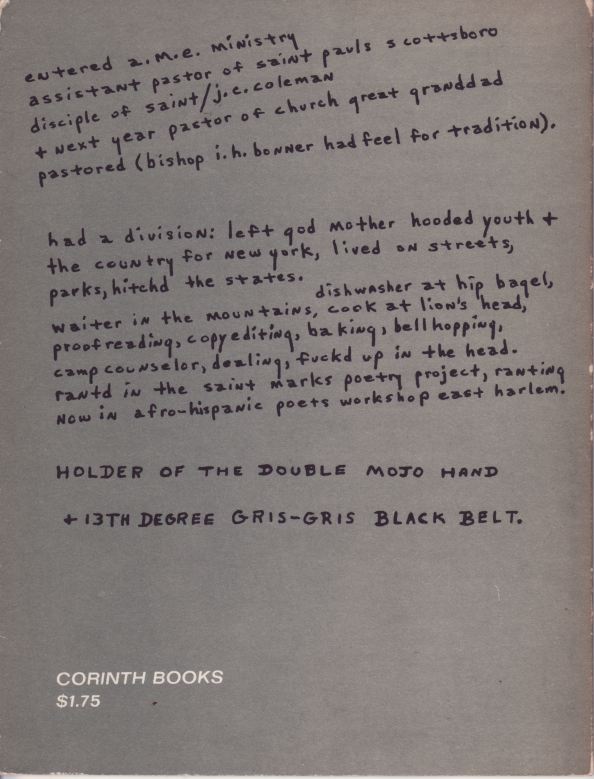 entered a.m.e. ministry
assistant pastor of saint pauls scottsboro
disciple of saint/j.c.coleman
+ next year pastor of church great granddad
pastored (bishop i.h.bonner had feel for tradition).
had a division: left god mother hooded youth +
the country for new york, lived on streets,
parks, hitchd the states.
dishwasher at hip bagel,
waiter in the mountains, cook at lion's head,
proofreading, copyediting, baking, bellhopping,
camp counselor, dealing, fuckd up in the head.
rantd in the saint marks poetry project, ranting
now in afro-hispanic poets workshop east harlem.
HOLDER OF THE DOUBLE MOJO HAND
+ 13TH DEGREE GRIS-GRIS BLACK BELT.
CORINTH BOOKS
$1.75